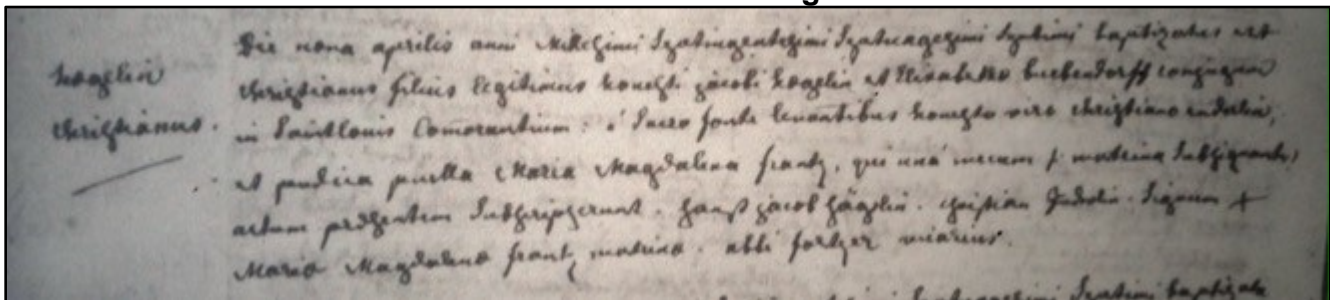 haeglin
christianus.
Die nona aprilis anni Millesimi Septingentesimi Septuagesimi Septimi baptizatus est
christianus filius legitimus honesti jacobi haeglin et Elisabetha buebendorff conjugum
in Saintlouis Comorantium. è Sacro fonte levantibus honesto viro christiano
et pudica puella Maria Magdalena frantz, qui unà mecum matrina Subsignante
actum praesentem Subscripserunt. hanß jacob häglin. christian Signum +
Maria Magdalena frantz matrina. abbé vicarius.
Septimi baptizata